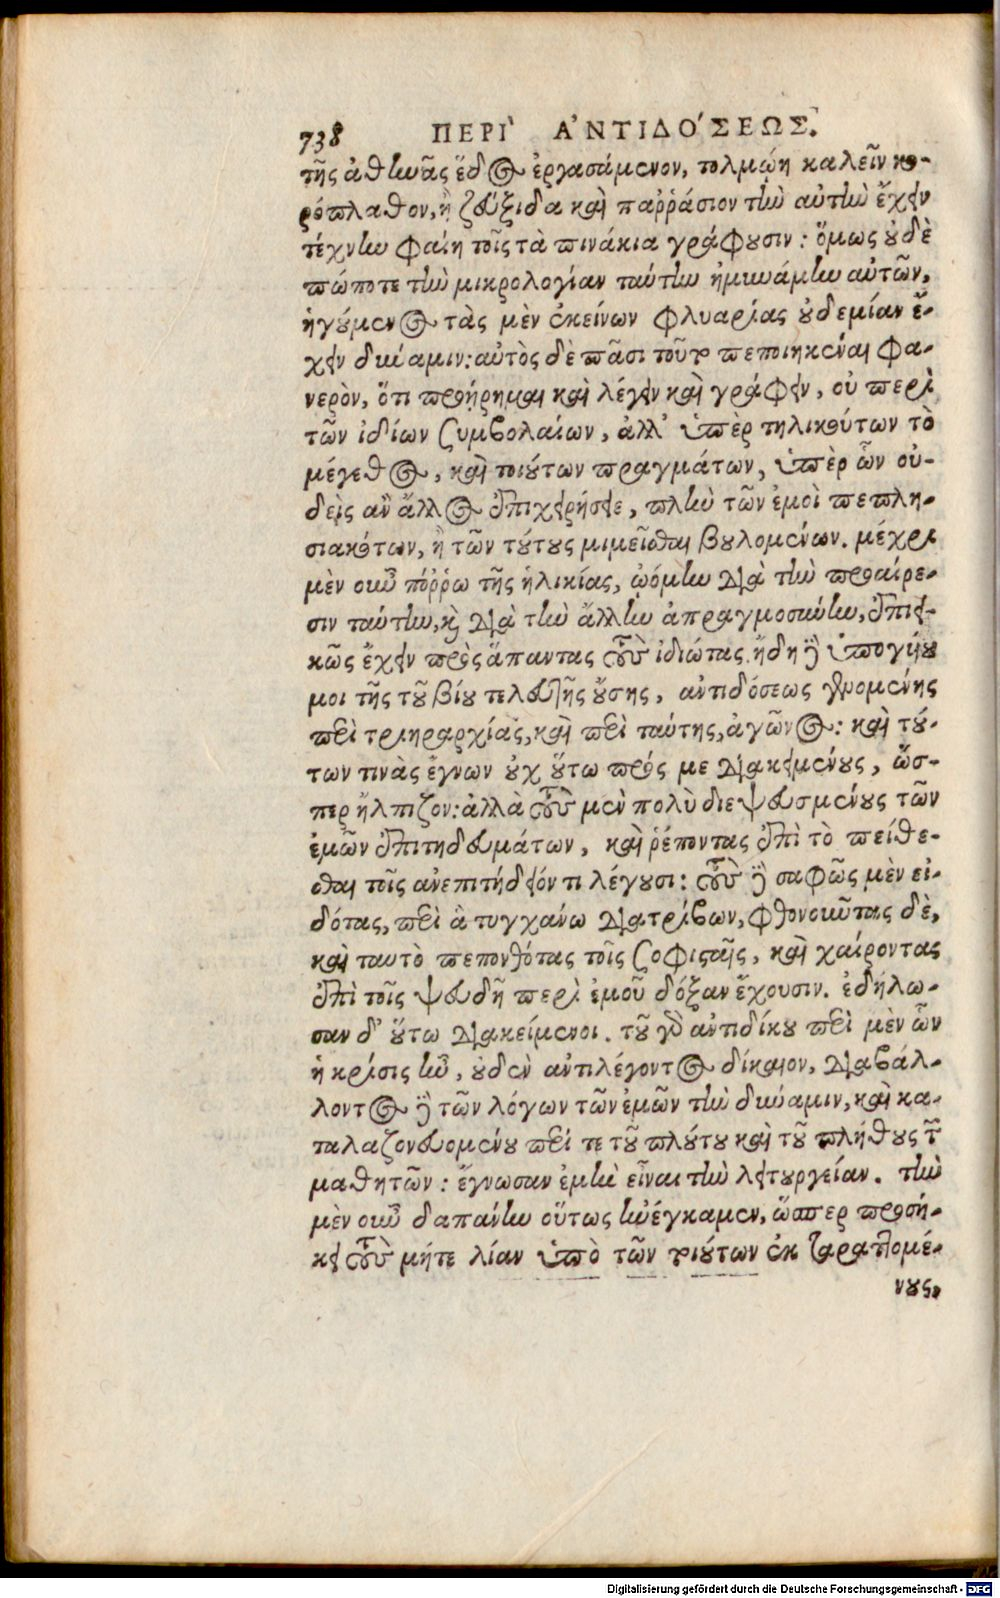 738 ΠΕΡΙ᾽ ἈΝΤΙΔΟ´ΣΕΩΣ.
τῆς ἀθηνᾶς ἕδος ἐργασάμενον, τολμῴη καλεῖν κο-
ρόπλαθον, ἢ ζεῦξιδα καὶ παῤῥάσιον τὴν αὐτὴν ἔχειν
τέχνην φαίη τοῖς τὰ πινάκια γράφουσιν: ὅμως οὐδὲ
πώποτε τὴν μικρολογίαν ταύτην ἠμυνάμην αὐτῶν,
ἡγούμενος τὰς μὲν ἐκείνων φλυαρίας οὐδεμίαν ἔ-
χειν δύναμιν: αὐτὸς δὲ πᾶσι τοῦτο πεποιηκέναι φα-
νερὸν, ὅτι προῄρημαι καὶ λέγειν καὶ γράφειν, οὐ περὶ
τῶν ἰδίων συμβολαίων, ἀλλ᾽ ὑπὲρ τηλικούτων τὸ
μέγεθος, καὶ τοιούτων πραγμάτων, ὑπὲρ ὧν οὐ-
δεὶς ἂν ἄλλος ἐπιχειρήσειε, πλὴν τῶν ἐμοὶ πεπλη-
σιακότων, ἢ τῶν τούτους μιμεῖσθαι βουλομένων. μέχρι
μὲν οὖν πόῤῥω τῆς ἡλικίας, ᾠόμην διὰ τὴν προαίρε-
σιν ταύτην, καὶ διὰ τὴν ἄλλην ἀπραγμοσύνην, ἐπιει-
κῶς ἔχειν πρὸς ἅπαντας τοὺς ἰδιώτας. ἤδη δὲ ὑπογύου
μοι τῆς τοῦ βίου τελευτῆς οὔσης, ἀντιδόσεως γενομένης
περὶ τριηραρχίας, καὶ περὶ ταύτης, ἀγῶνος: καὶ τού-
των τινὰς ἔγνων οὐχ οὕτω πρός με διακειμένους, ὥσ-
περ ἤλπιζον: ἀλλὰ τοὺς μὲν πολὺ διεψευσμένους τῶν
ἐμῶν ἐπιτηδευμάτων, καὶ ῥέποντας ἐπὶ τὸ πείθε-
σθαι τοῖς ἀνεπιτήδειόν τι λέγουσι: τοὺς δὲ σαφῶς μὲν εἰ-
δότας, περὶ ἃ τυγχάνω διατρίβων, φθονοῦντας δὲ,
καὶ ταυτὸ πεπονθότας τοῖς σοφισταῖς, καὶ χαίροντας
ἐπὶ τοῖς ψευδῆ περὶ ἐμοῦ δόξαν ἔχουσιν. ἐδήλω-
σαν δ᾽ οὕτω διακείμενοι. τοῦ γὰρ ἀντιδίκου περὶ μὲν ὧν
ἡ κρίσις ἦν, οὐδὲν ἀντιλέγοντος δίκαιον, διαβάλ-
λοντος δὲ τῶν λόγων τῶν ἐμῶν τὴν δύναμιν, καὶ κα-
ταλαζονευομένου περί τε τοῦ πλούτου καὶ τοῦ πλήθους τῶν
μαθητῶν: ἔγνωσαν ἐμὴν εἶναι τὴν λειτουργείαν. τὴν
μὲν οὖν δαπάνην οὕτως ἠνέγκαμεν, ὥσπερ προσή-
κει τοὺς μήτε λίαν ὑπὸ τῶν τοιούτων ἐκταραττομέ-
νους,
Digitalisierung gefördert durch die Deutsche Forschungsgemeinschaft - DFG